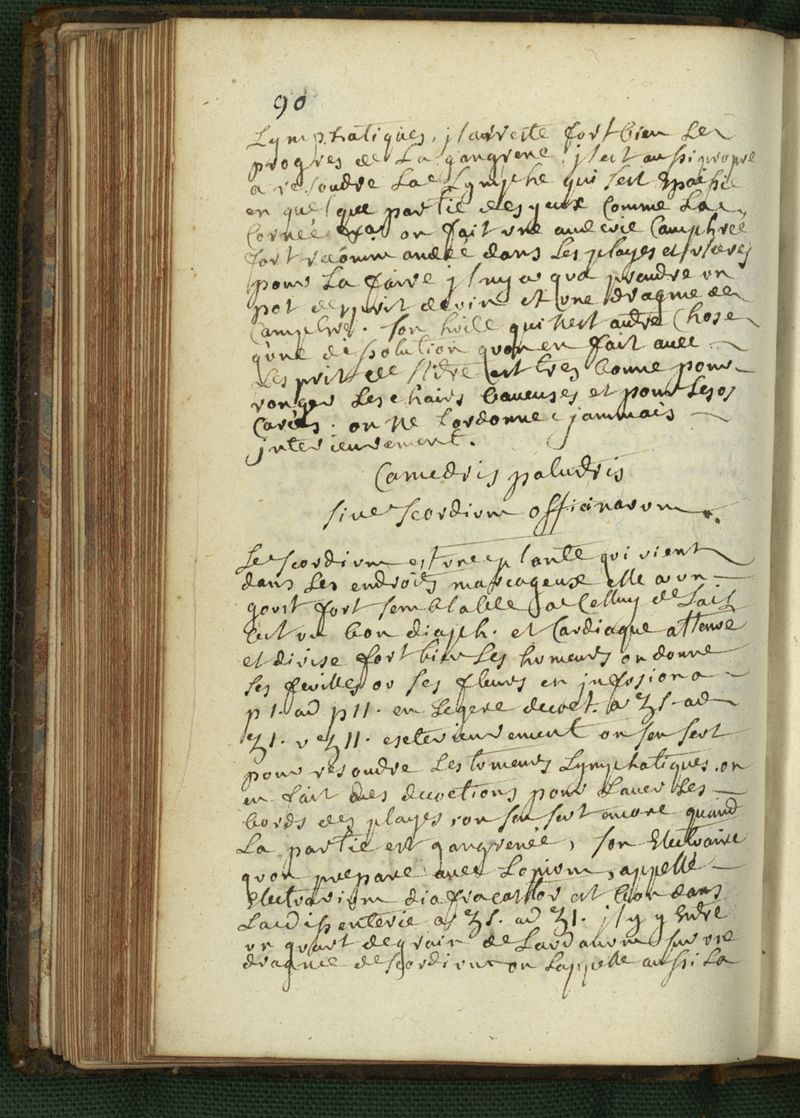 90
Lymphatiques. jl arreste fort bien le
progres de la gangrene, jl est aussi propre
a resoudre la Lymphe qui sest Epaissie
en quelque partie des yeux comme La
Cornee on fait une eau de vie Camphrée
fort recommandée dans les playes et ulceres
pour La faire jl ny a qua prendre un
pot desprit de vin et une dragme de
Camphre. son huile qui nest autre Chose
qune dissolution quon en fait avec
Lesprit de Nitre est tres bonne pour
ronger Les chairs baveuses et pour les os
Cariés. on ne Lordonne jammais
jnterieurement.
Camedris paludris
sive scordium officinarum.
Le scordium est une plante qui vient
dans Les endroits marcageux elle a un
goust fort semblable a Celluy de Lail
Cest un bon diaph. et Cardiaque attenue
et divise fort bien Les humeurs on donne
ses feuilles ou ses fleurs en jnfusion a
p I. ad p II. en Legere decoct. a ʒ s. ad
ʒ I. v ʒ II. exterieurement on sen sert
pour resoudre Les tumeurs Lymphatiques. on
en fait des decoctions pour Laver Les
bords des playes, on sen sert encore quand
La partie est gangrenée, son Electuaire
quon prepare avec Lopium, appellé
Electuarium diafracastor est bon dans
La dissenterie a ʒ s. ad ʒ I. jl y Entre
un quart de grain de Laudanum sur une
dragme de scordium on Lappelle aussi La